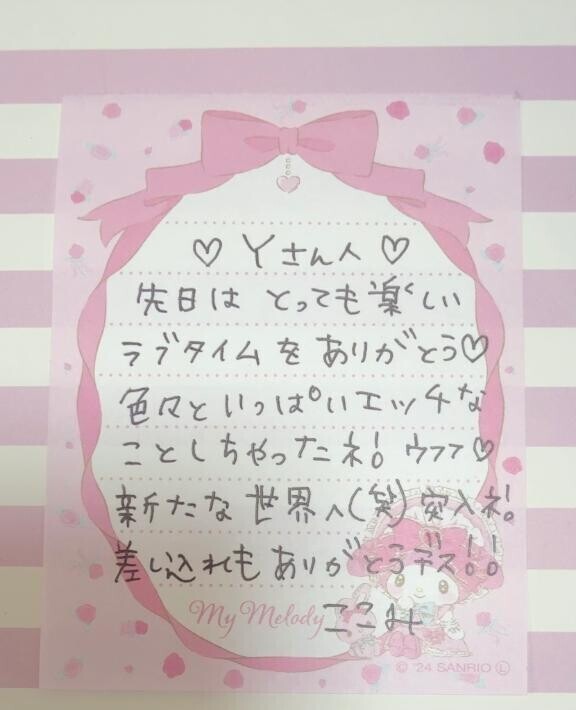 ♡ Yさんへ ♡
先日は とっても楽しい
ラブタイムを ありがとう♡
色々といっぱいエッチな
ことしちゃったネ! ウフフ♡
新たな世界へ(笑)突入ネ!
差し入れもありがとうデス!!
My Melody ここみ
© '24 SANRIO Ⓛ